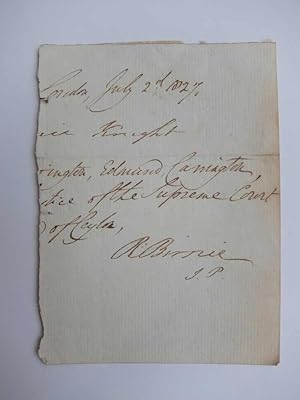 London, July 2d 1827,
Knight
ington, Edmund Carrington,
stice of the Supreme Court
of Ceylon,
R. Birnie
J. P.